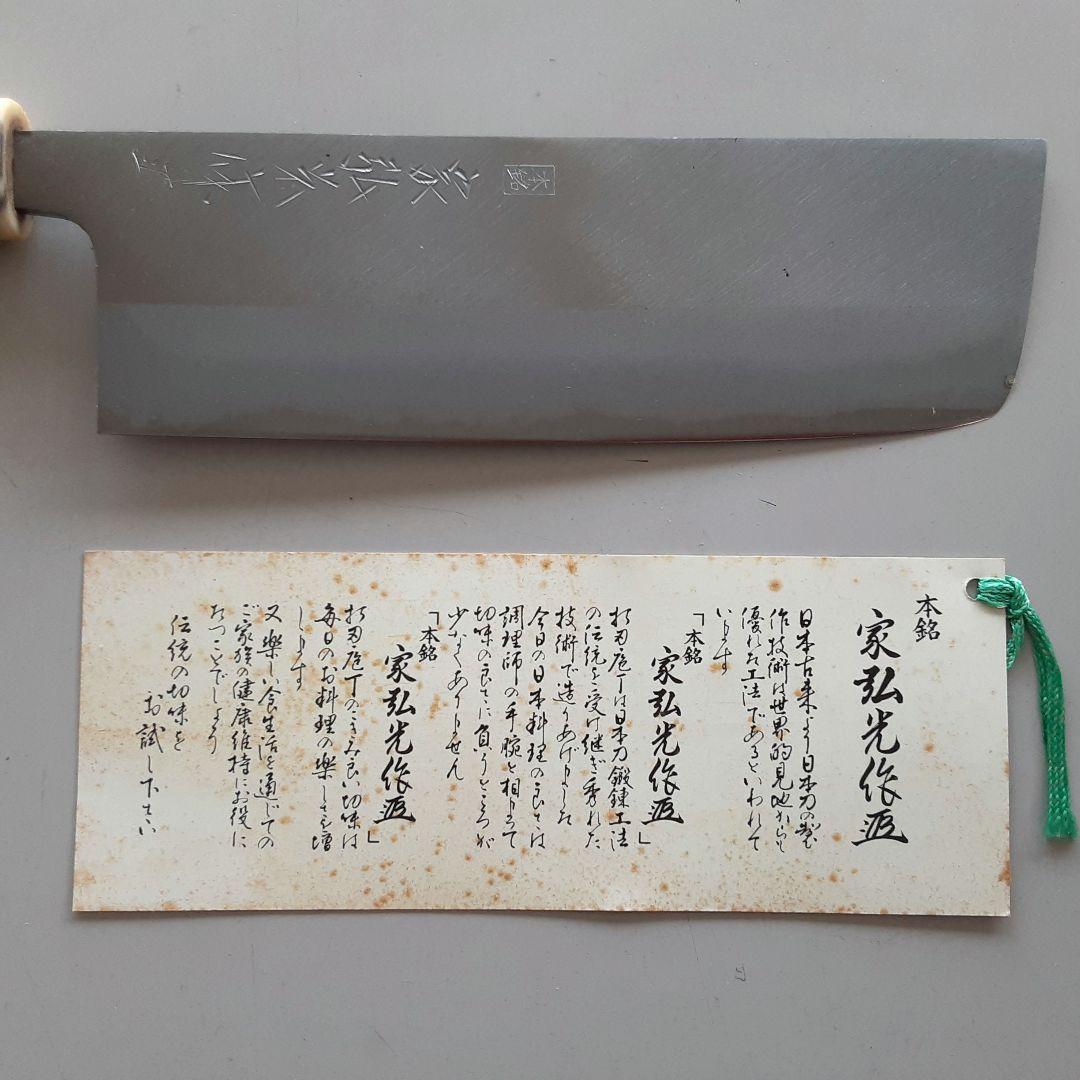 本銘
家弘光作
本銘
家弘光作
日本古来より日本刀の製
作技術は世界的見地からいて
優れた工法であるといわれて
います
「本銘
家弘光作
」
打刃庖丁は日本刀鍛錬工法
の伝統を受け継ぎ秀れた
技術で造りあげました
今日の日本料理の良さは
調理師の手腕と相まって
切味の良さに負うところが
少なくありません
「本銘
家弘光作
」
打刃庖丁のきみ良い切味は
毎日のお料理の楽しさを増
します
又楽しい食生活を通じての
ご家族の健康維持にお役に
たつことでしょう
伝統の切味を
お試し下さい